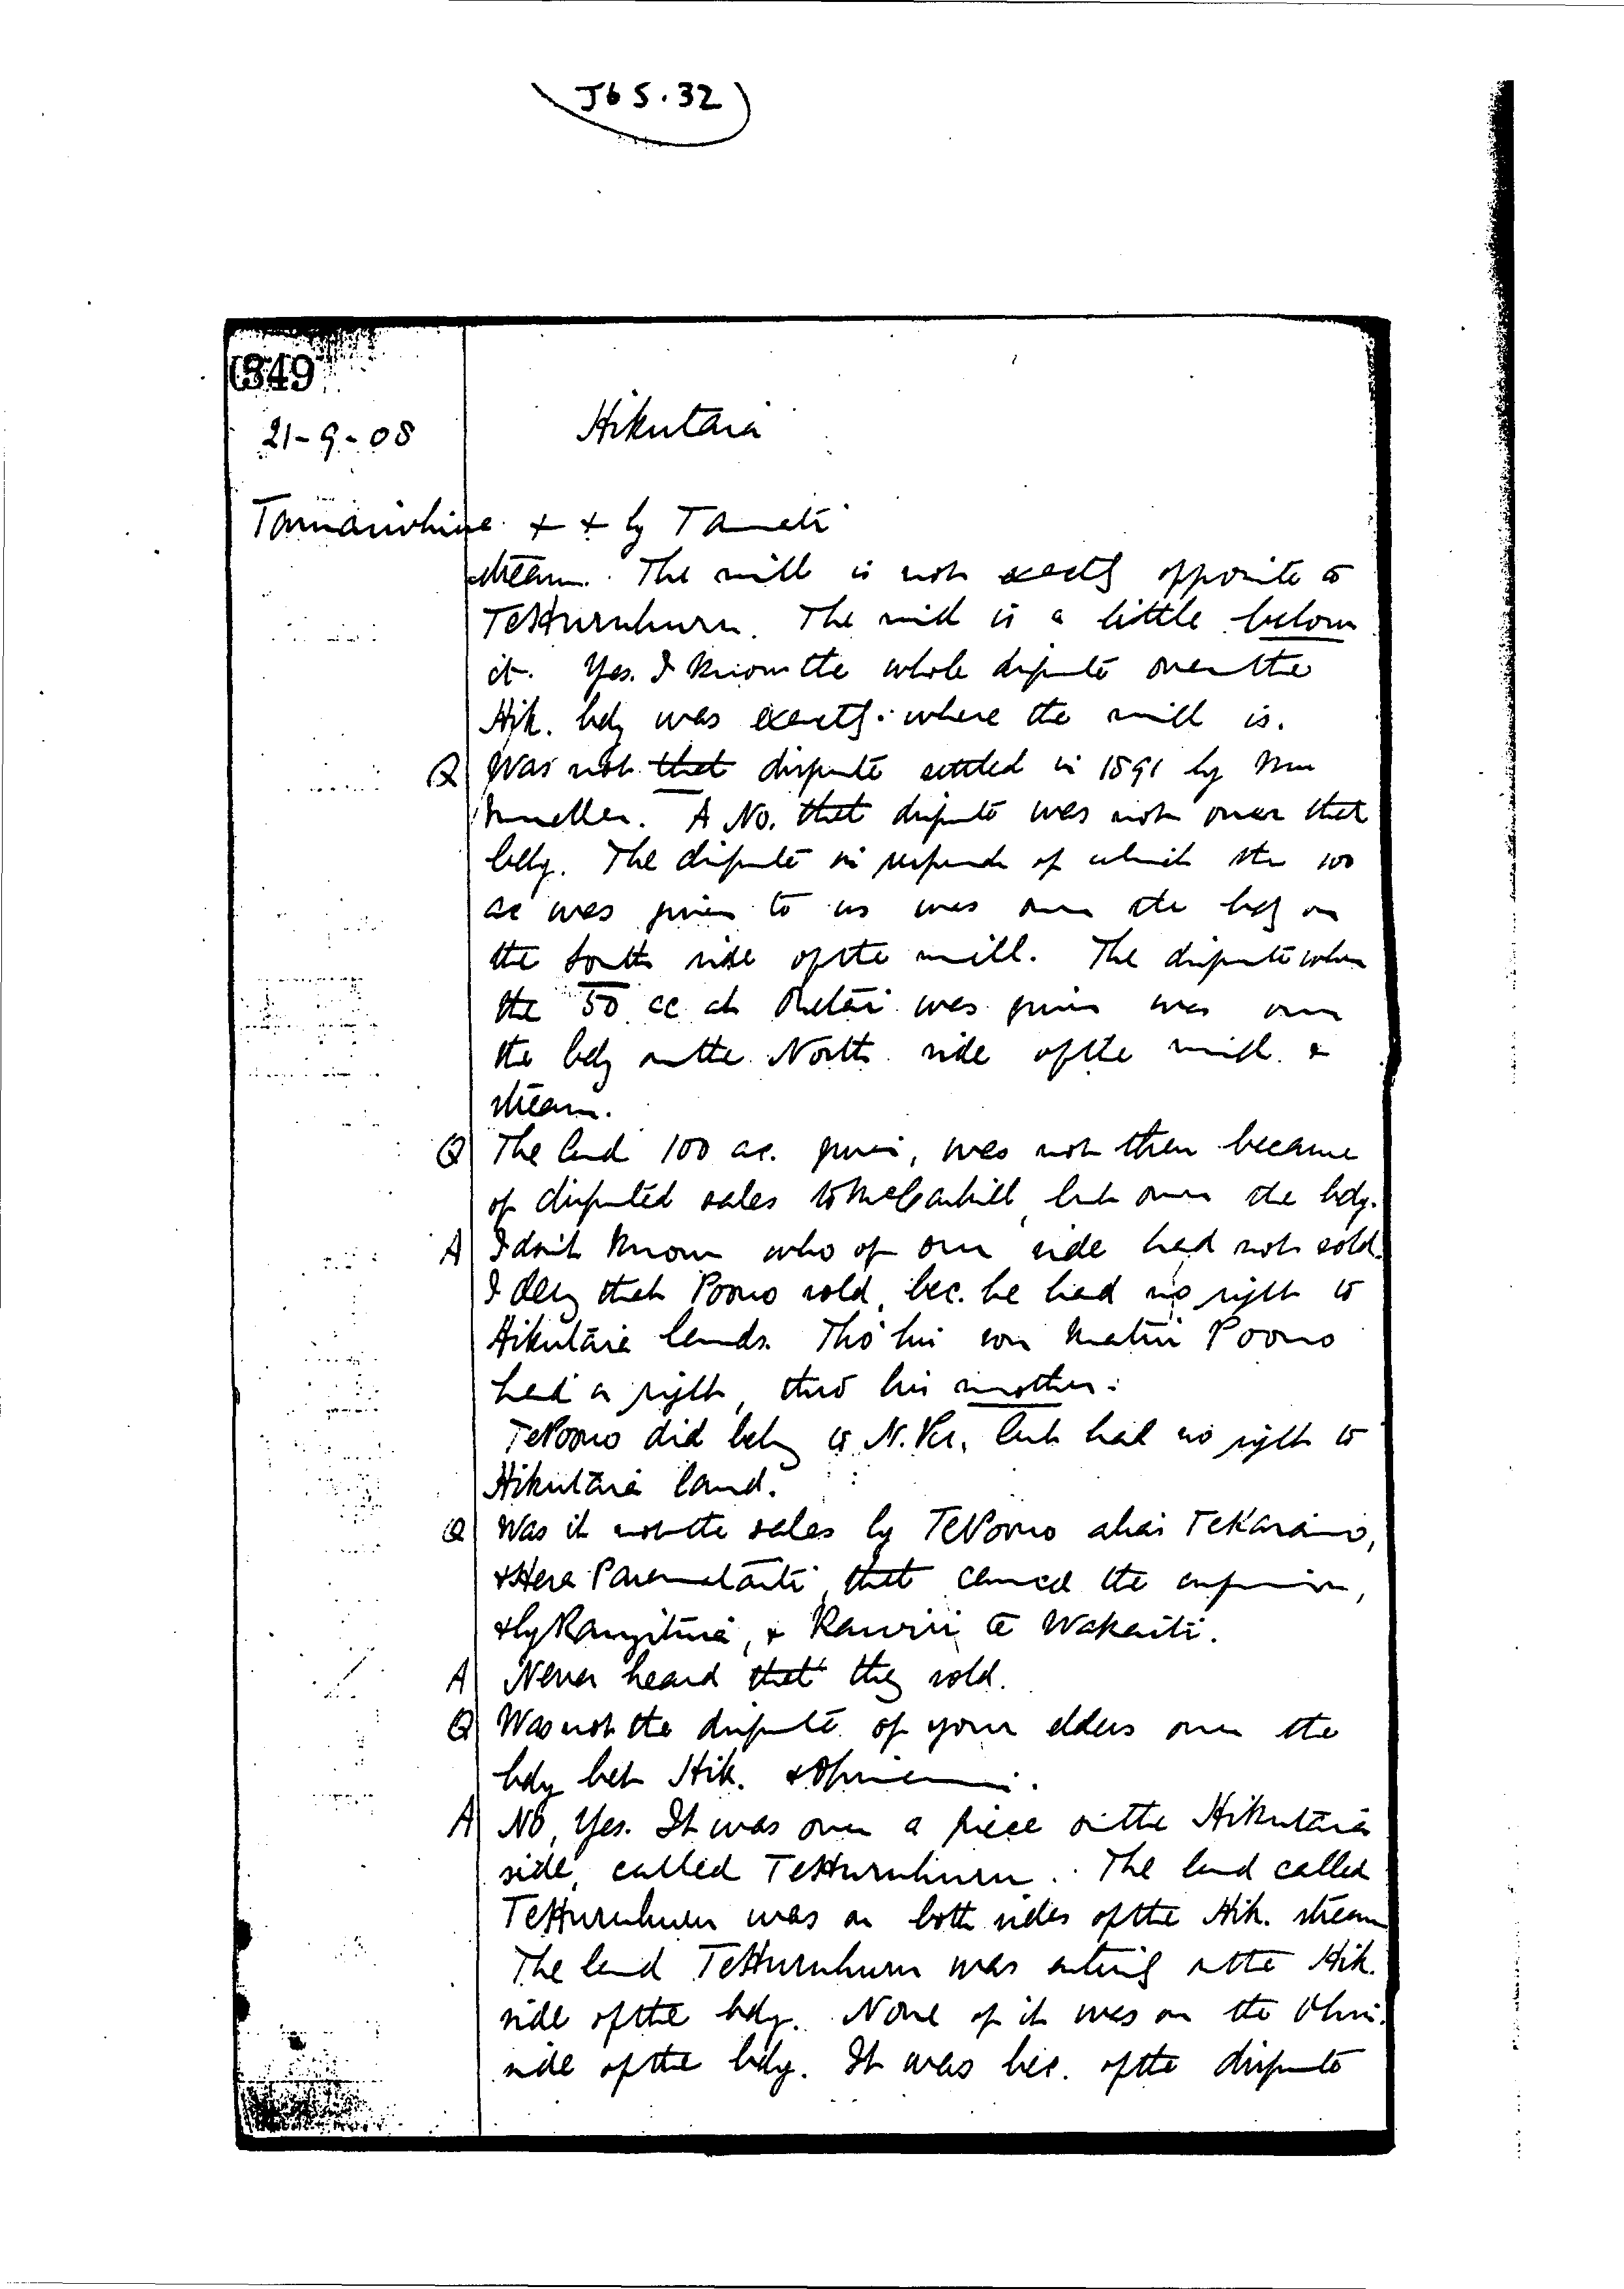 J6 S.32
349
21-9-08
Hikutaia
Tamaiwhine + + by Tameti
stream. The mill is not exactly opposite to
TeHuruhuru. The mill is a little below
it. Yes. I know the whole dispute over the
Hik. bdy was exactly where the mill is.
Q Was not that dispute settled in 1891 by Mr
Mueller. A No. that dispute was not over that
bdy. The dispute in respect of which the 100
ac was given to us was over the bdy on
the South side of the mill. The dispute when
the 50 ac at was given was over
the bdy on the North side of the mill &
stream.
Q The land 100 ac. given, was not then because
of disputed sales to McCaskill, but over the bdy.
A I don't know who of our side had not sold.
I deny that Poono sold, bec. he had no right to
Hikutaia lands. Tho' his son Matiu Poono
had a right, thro his mother.
TePoono did belong to N. but had no right to
Hikutaia land.
Q Was it not the sales by TePoono alias TeKaraino,
& Hera that caused the confusion,
& by Rangituia, & Rawiri te Wakaiti.
A Never heard that they sold.
Q Was not the dispute of your elders over the
bdy bet Hik. &
A No, Yes. It was over a piece on the Hikutaia
side, called TeHuruhuru. The land called
TeHuruhuru was on both sides of the Hik. stream
The land TeHuruhuru was entirely on the Hik.
side of the bdy. None of it was on the
side of the bdy. It was bec. of the dispute